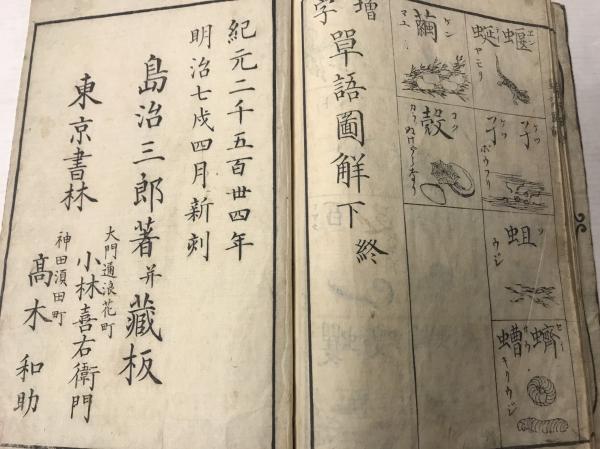 蝘蜓
エン
ヤモリ
孑孓
ケツ
ボウフリ
蛆
ソ
ウジ
蠐螬
キリウジ
繭
ケン
マユ
殼
カク
増字
單語圖解下
終
紀元二千五百卅四年
明治七戌四月新刻
島治三郎著并藏板
東京書林
大門通浪花町
小林喜右衛門
神田須田町
髙木和助